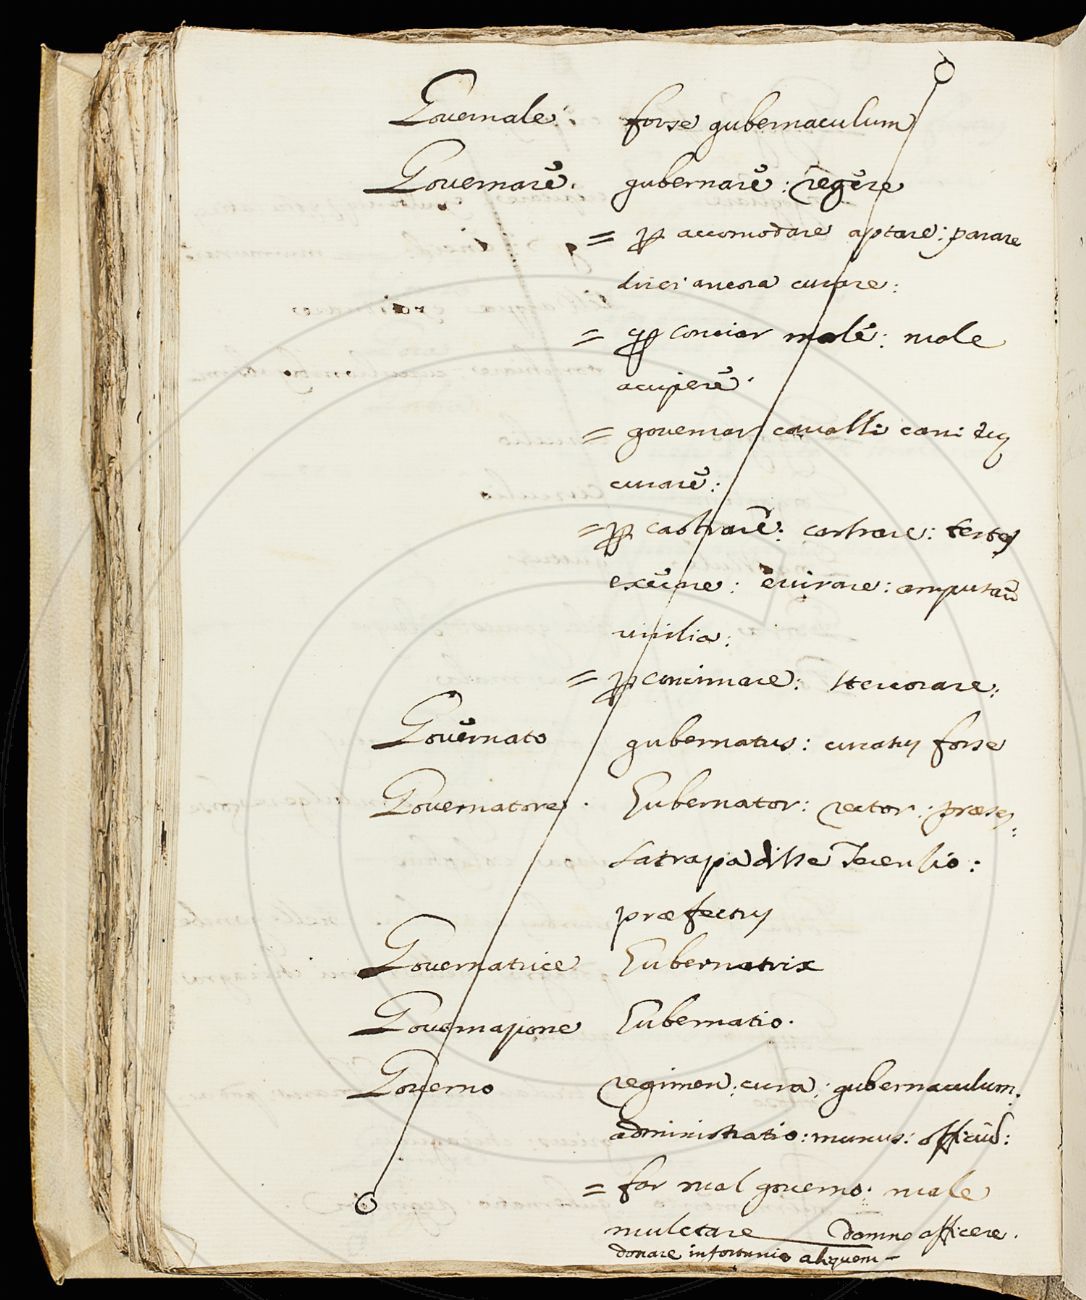 Governale: forse gubernaculum
Governare. gubernare: regere
= p accomodare aptare: parare
dicei ancora curare:
= p conciar male: male
accipere.
= governar cavalli cani &c
curare:
= p castrare: castrare: testes
execare: evirare: amputare
virilia:
= p concimare: stercorare:
Governato gubernatus: curatus forse
Governatore. Gubernator: rector: præses:
Satrapa disse Terentio:
præfectus
Governatrice Gubernatrix
Governazione Gubernatio.
Governo regimen: cura: gubernaculum.
administratio: munus: officiũ:
= far mal governo: male
mulctare damno afficere.
donare infortunio aliquem